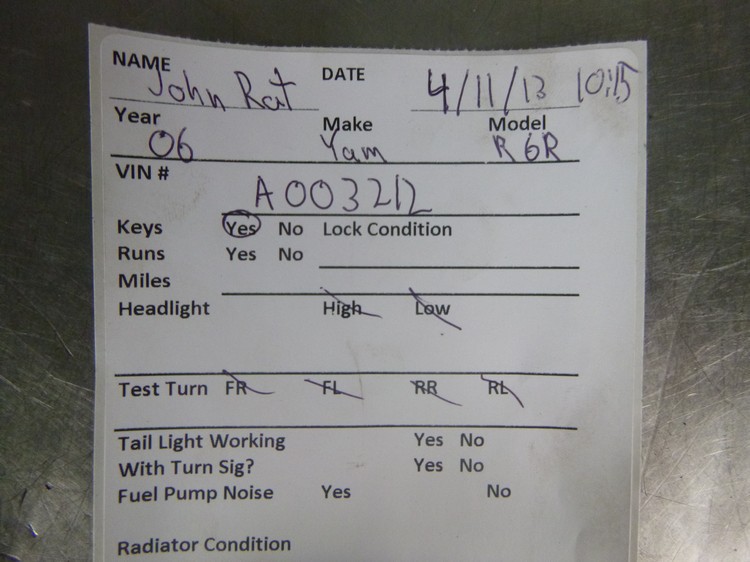 NAME John Rat DATE 4/11/13 10:15
Year 06 Make Yam Model R6R
VIN # A003212
Keys Yes No Lock Condition
Runs Yes No
Miles
Headlight High Low
Test Turn FR FL RR RL
Tail Light Working Yes No
With Turn Sig? Yes No
Fuel Pump Noise Yes No
Radiator Condition